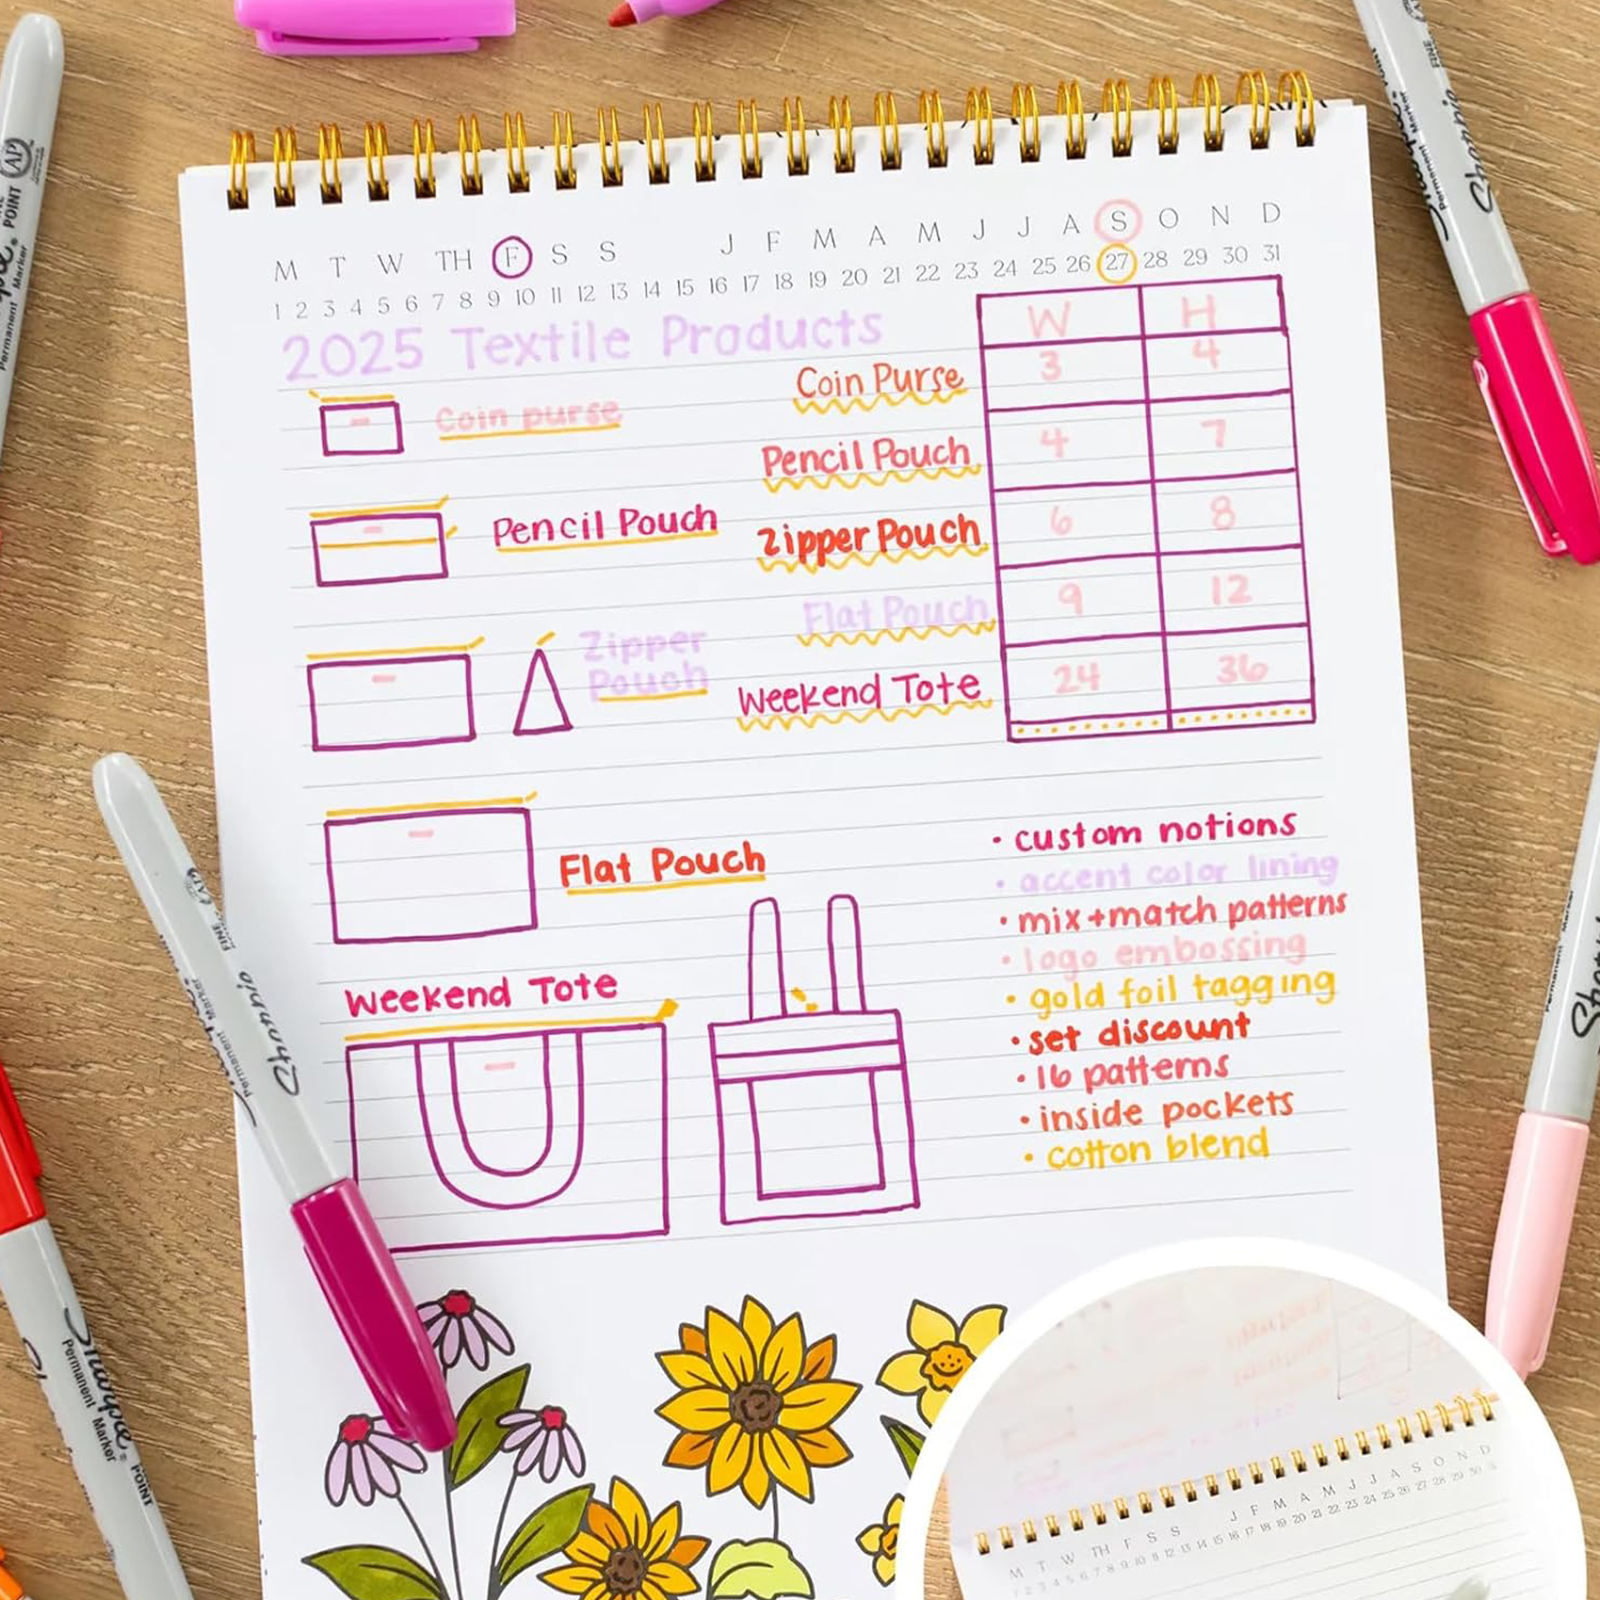 M T W TH F S S J F M A M J J A S O N D
1 2 3 4 5 6 7 8 9 10 11 12 13 14 15 16 17 18 19 20 21 22 23 24 25 26 27 28 29 30 31
2025 Textile Products
Coin purse
Pencil Pouch
Zipper
Pouch
Flat Pouch
Weekend Tote
W H
Coin Purse 3 4
Pencil Pouch 4 7
Zipper Pouch 6 8
Flat Pouch 9 12
Weekend Tote 24 36
• custom notions
• accent color lining
• mix+match patterns
• logo embossing
• gold foil tagging
• set discount
• 16 patterns
• inside pockets
• cotton blend
Sharpie
Permanent Marker
FINE
AP
Sharpie
Permanent Marker
Sharpie
Permanent Marker
POINT
Sharpie
Permanent Marker
POINT
AP
Sharpie
M T W TH F S S J F M A M J J A S O N D
1 2 3 4 5 6 7 8 9 10 11 12 13 14 15 16 17 18 19 20 21 22 23 24 25 26 27 28 29 30 31